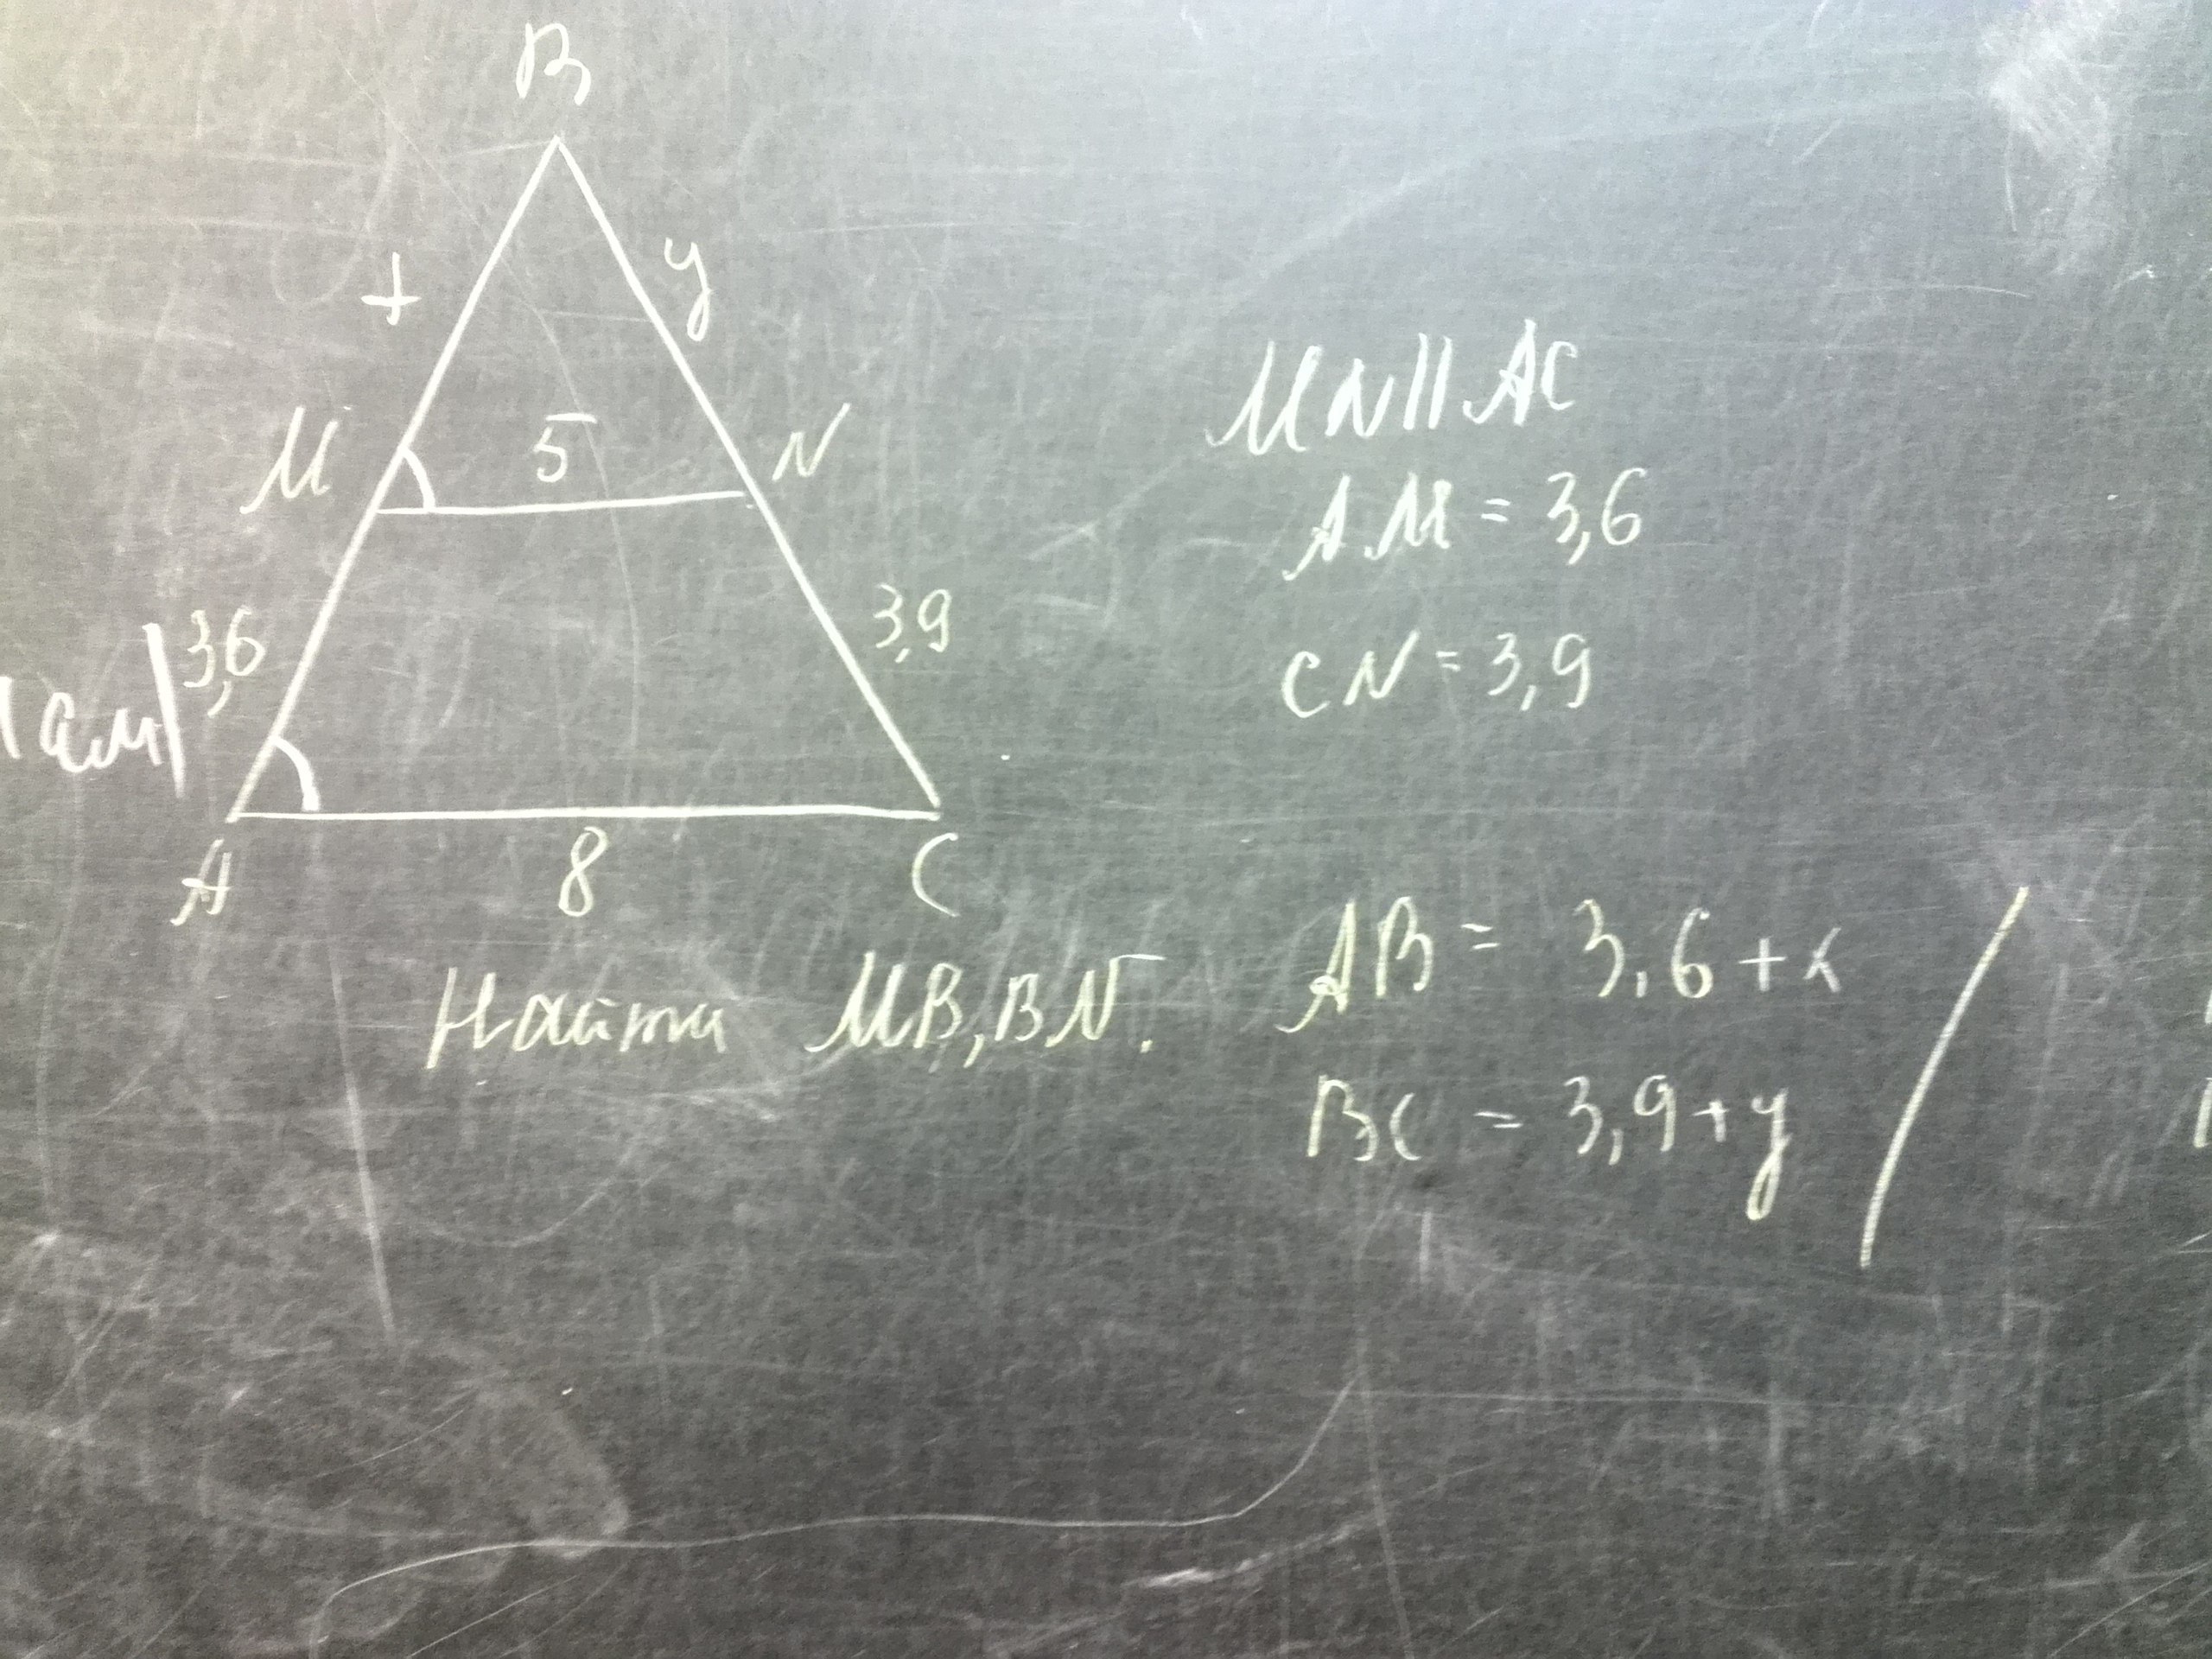 B
x y
M 5 N
3,6 3,9
A 8 C
Найти MB, BN.
MN || AC
AM = 3,6
CN = 3,9
AB = 3,6 + x
BC = 3,9 + y